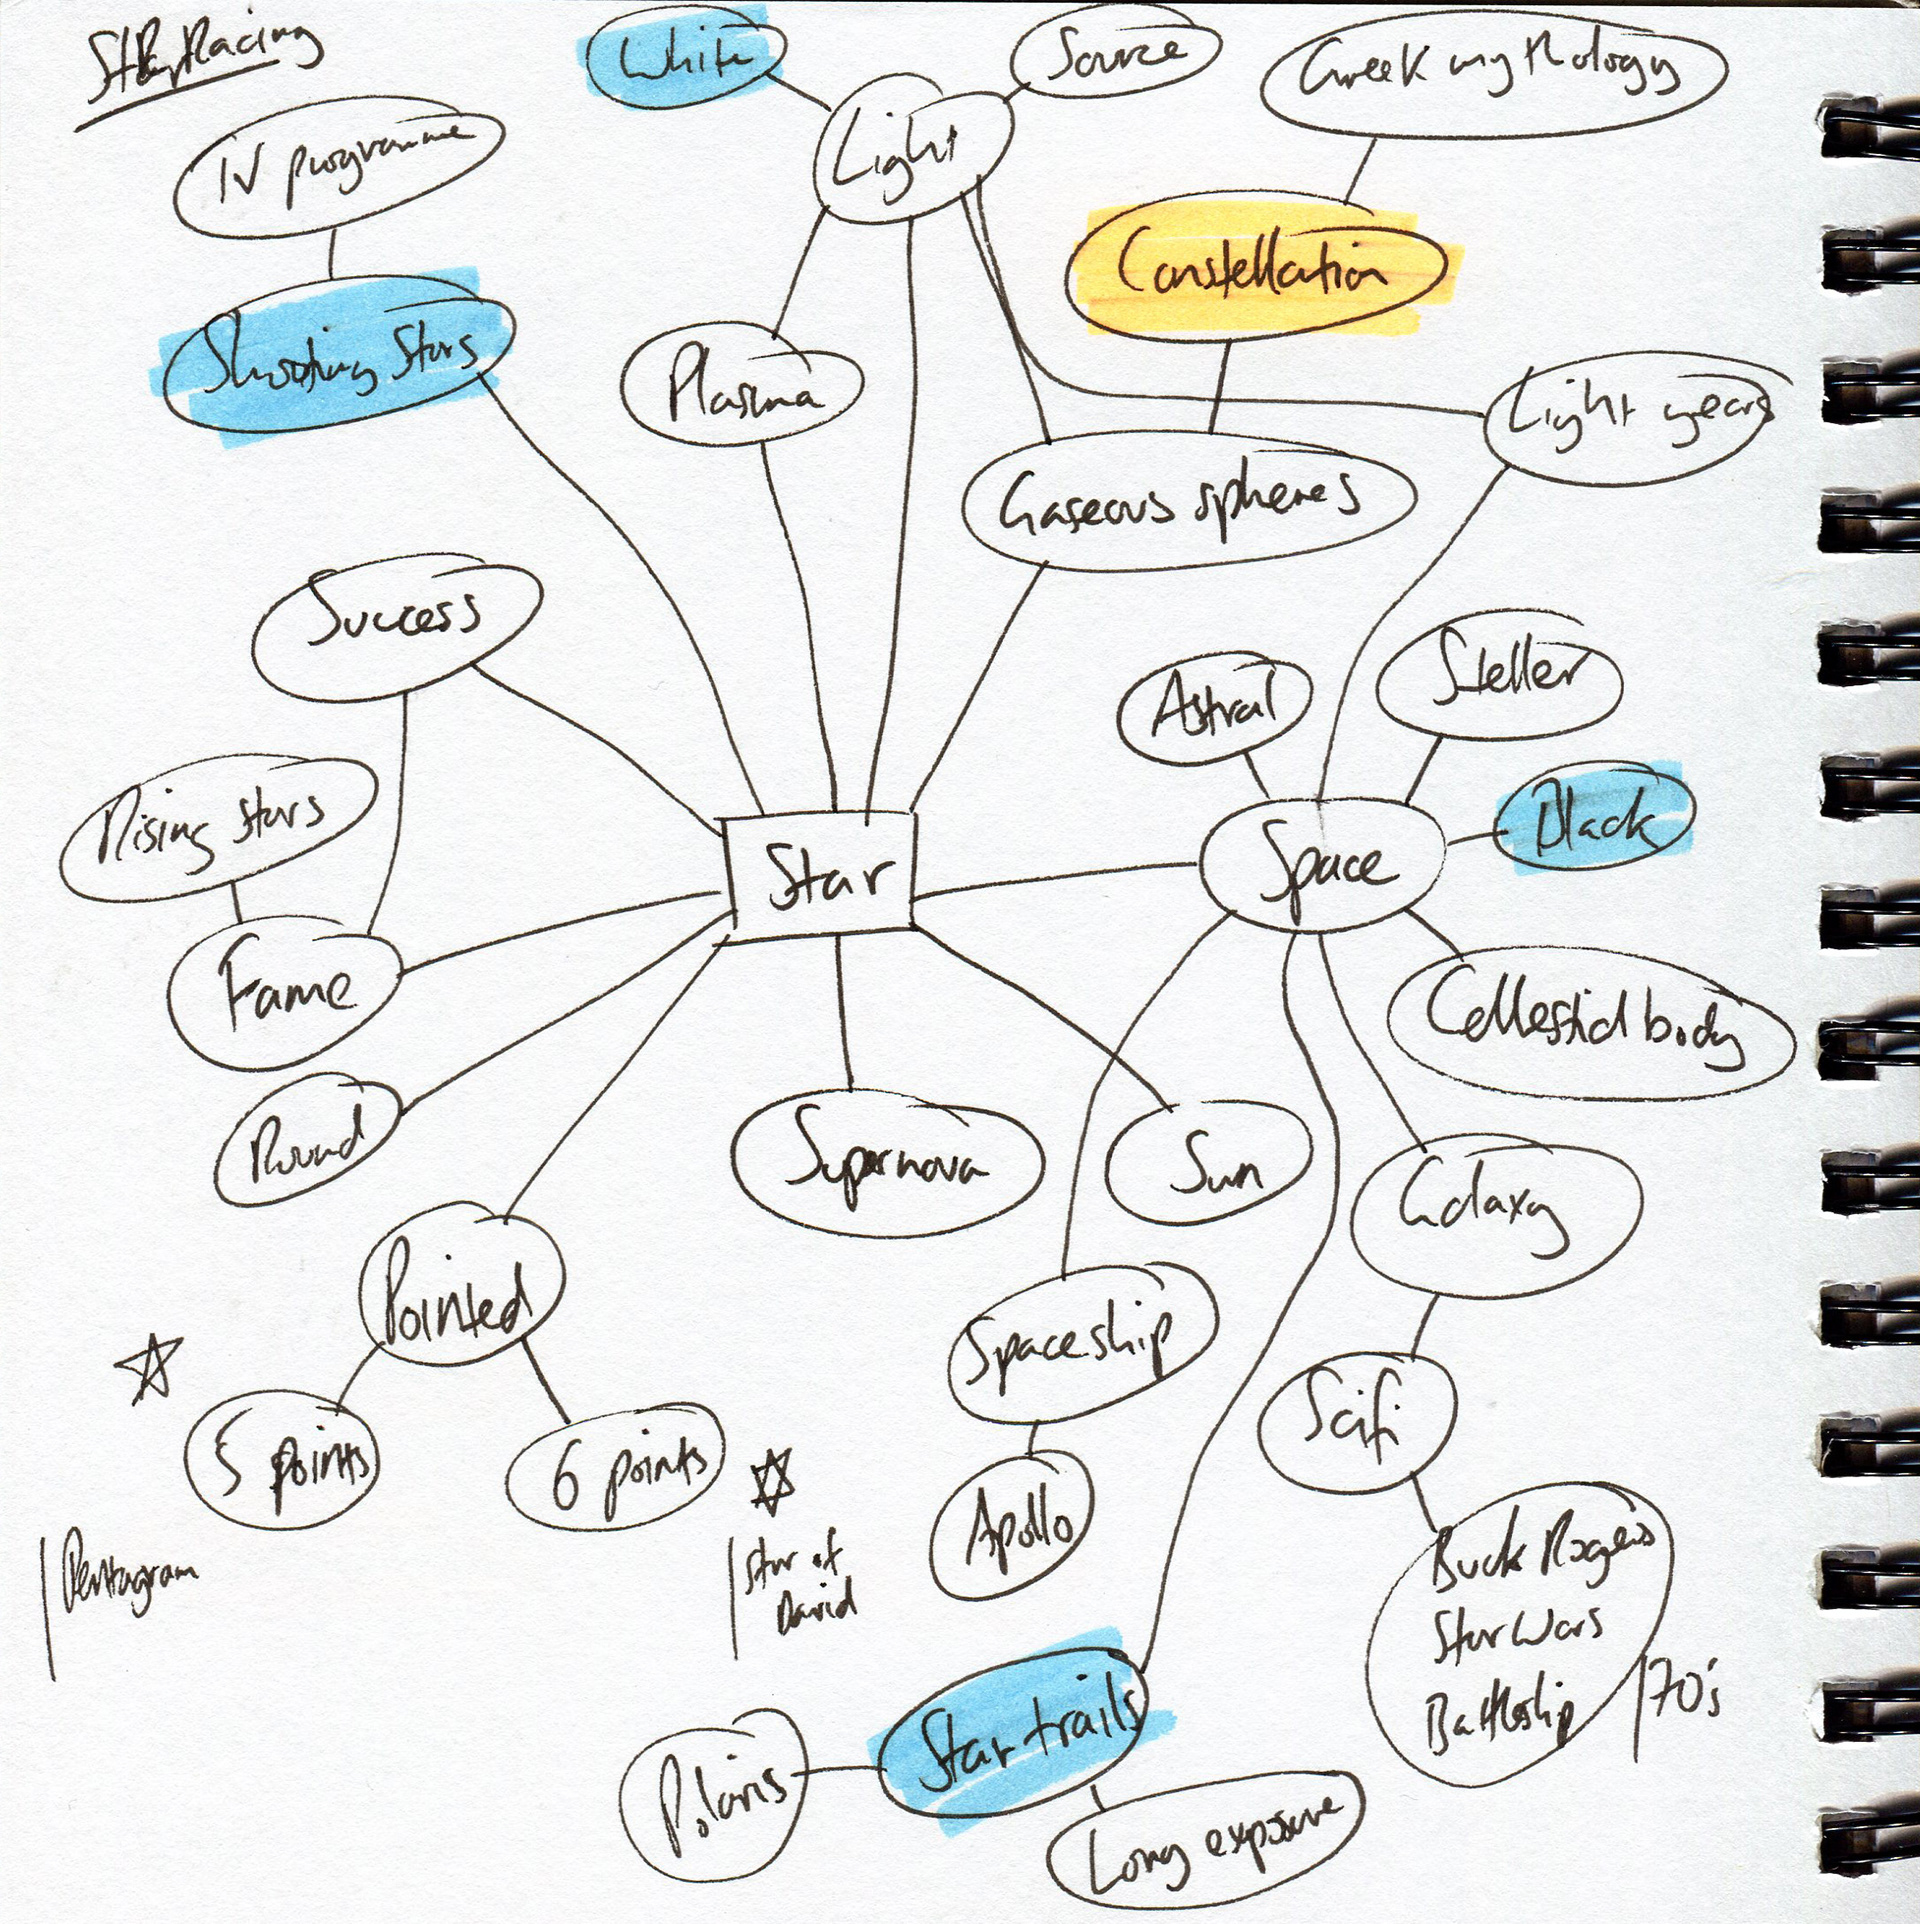 Racing
White
Source
Greek mythology
TV programme
Light
Constellation
Shooting Stars
Plasma
Light years
Gaseous spheres
Success
Astral
Steller
Rising Stars
Black
Star
Space
Fame
Cellestial body
Round
Supernova
Sun
Galaxy
Pointed
Spaceship
5 points
6 points
Scifi
Apollo
Pentagram
Star of
David
Buck Rogers
Star Wars
Battleship
70's
Star trails
Polaris
Long exposure